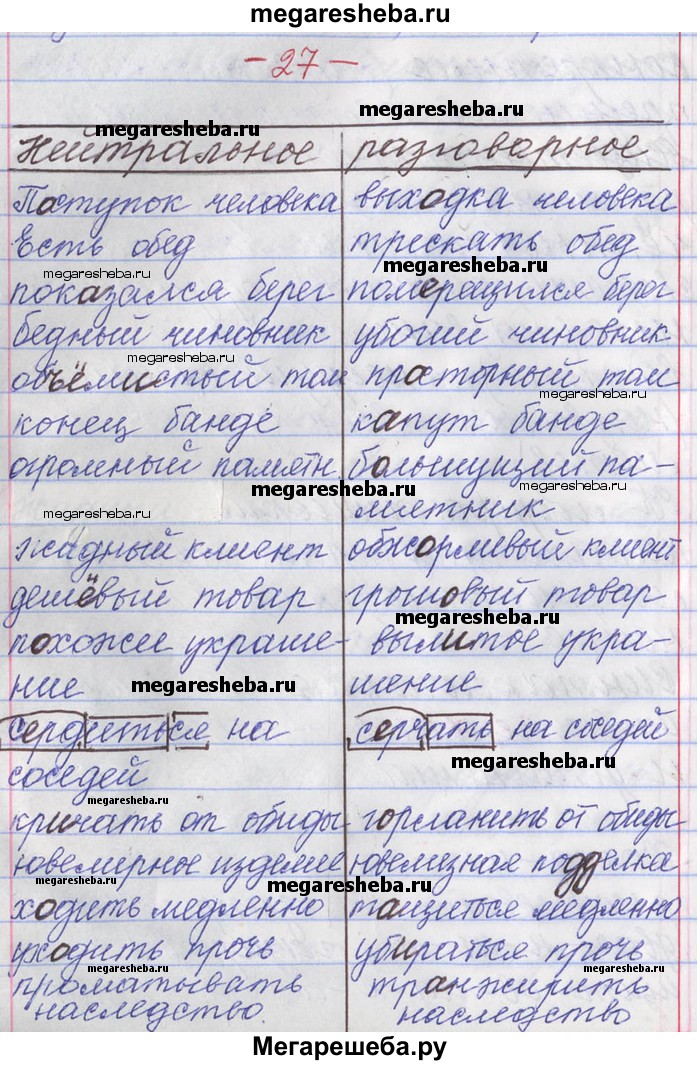 megaresheba.ru
- 27 -
megaresheba.ru
megaresheba.ru
Нейтральное разговорное
Поступок человека выходка человека
Есть обед трескать обед
megaresheba.ru megaresheba.ru
показался берег померещился берег
бедный чиновник убогий чиновник
megaresheba.ru
объёмистый том просторный том
megaresheba.ru
конец банде капут банде
огромный памятн. большущий па-
megaresheba.ru megaresheba.ru
мятник
megaresheba.ru
жадный клиент обжорливый клиент
дешёвый товар грошовый товар
megaresheba.ru
похожее украше- вылитое укра-
ние шение
megaresheba.ru
сердиться на серчать на соседей
соседей
megaresheba.ru
megaresheba.ru
кричать от обиды горланить от обиды
ювелирное изделие ювелизная подделка
megaresheba.ru megaresheba.ru
ходить медленно тащиться медленно
уходить прочь убираться прочь
megaresheba.ru megaresheba.ru
проматывать транжирить
наследство. наследство
Мегарешеба.ру